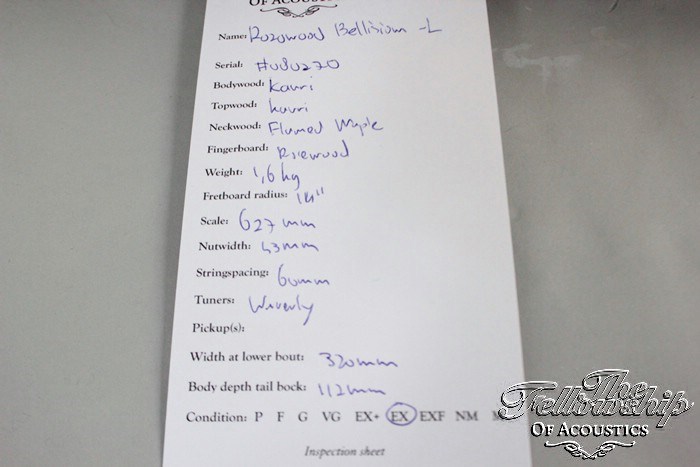 OF ACOUSTICS
Name: Rozowood Bellisium -L
Serial: #080270
Bodywood: Kauri
Topwood: kauri
Neckwood: Flumed Maple
Fingerboard: Rosewood
Weight: 1,6 kg
Fretboard radius: 14"
Scale: 627 mm
Nutwidth: 43mm
Stringspacing: 60mm
Tuners: Waverly
Pickup(s):
Width at lower bout: 320mm
Body depth tail bock: 112mm
Condition: P F G VG EX+ EX EXF NM M
Inspection sheet
The
Fellowship
OF ACOUSTICS